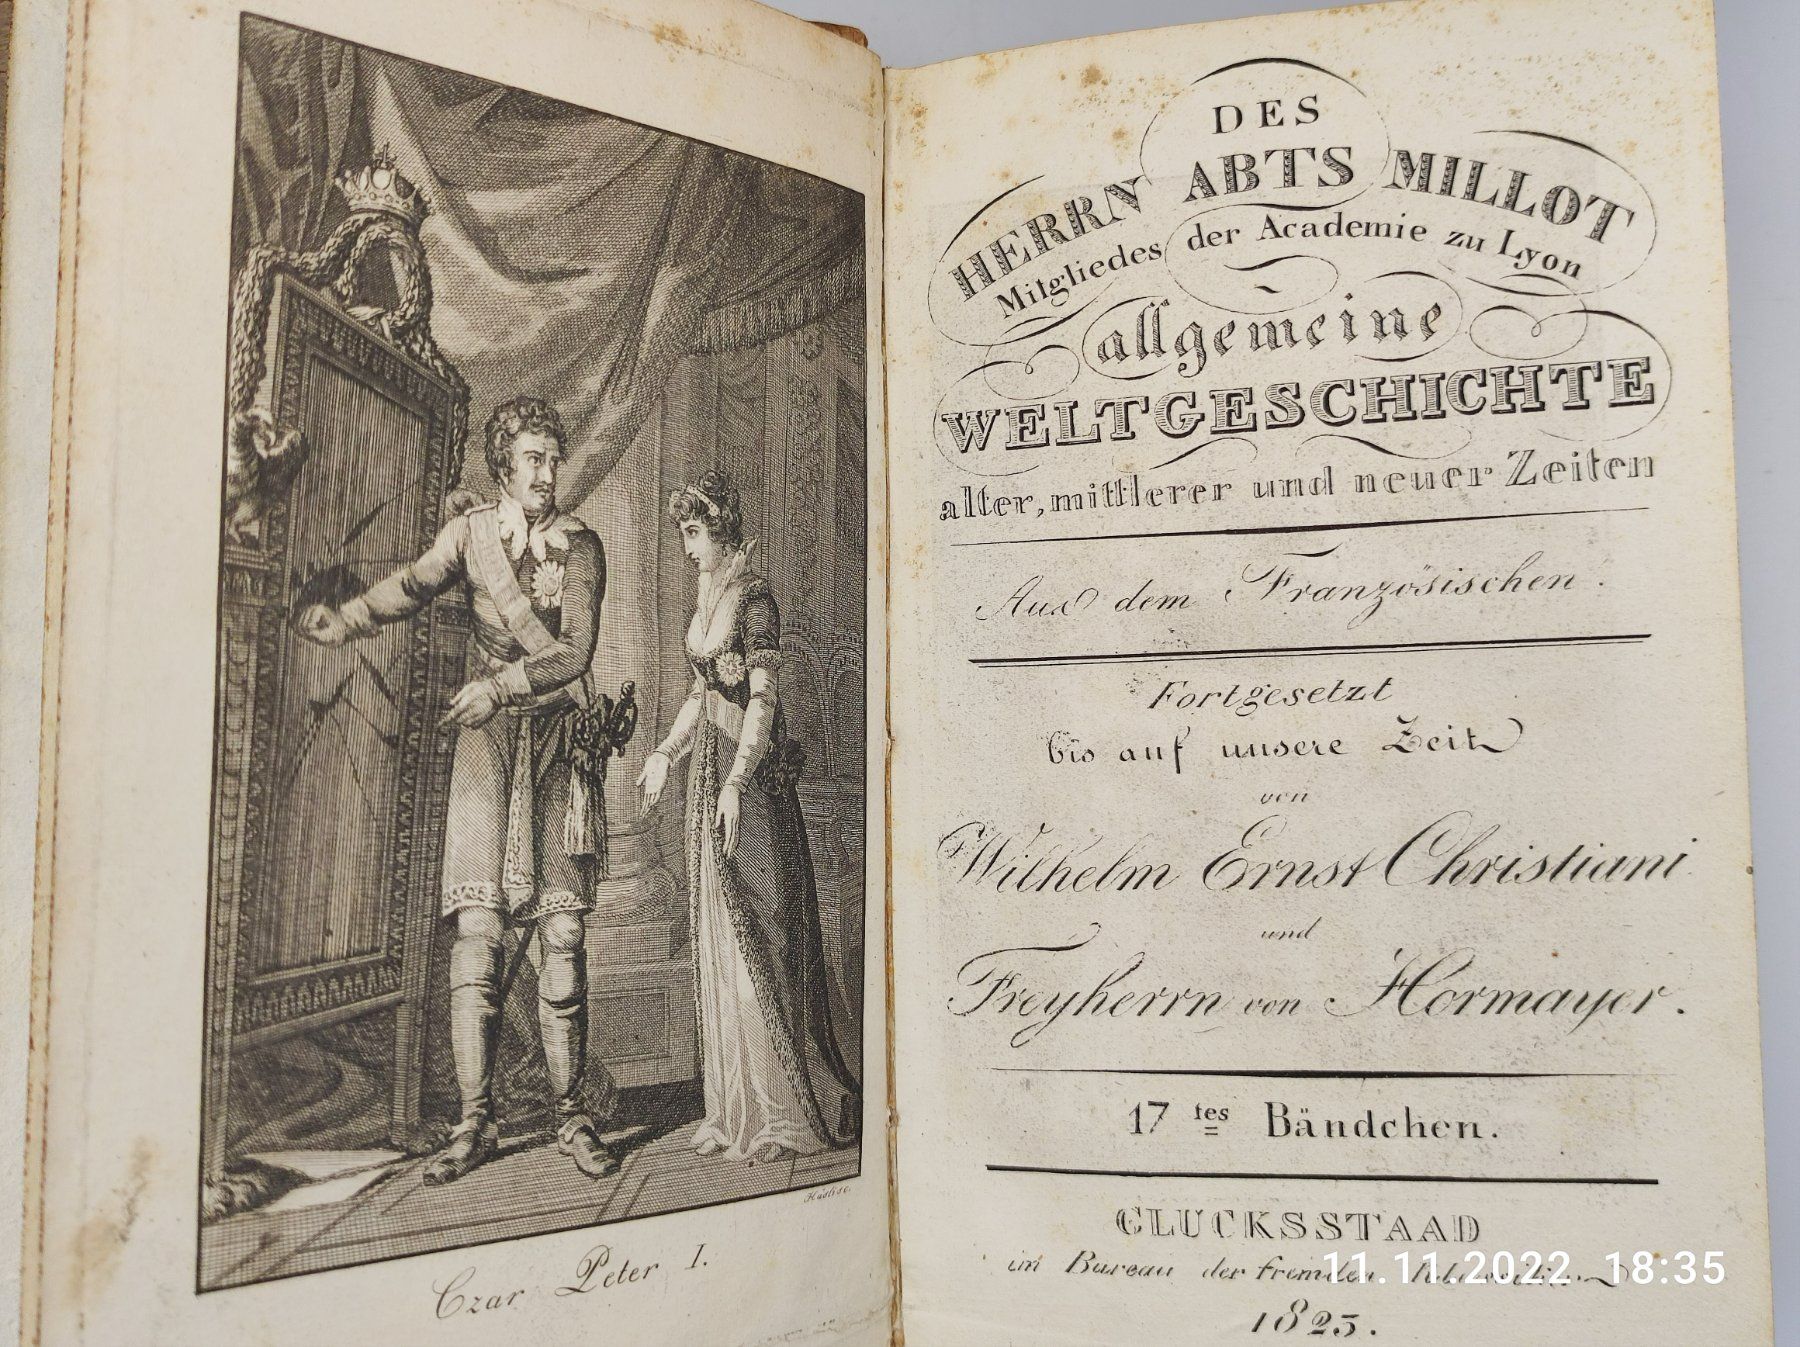 Czar Peter I.
DES
HERRN ABTS MILLOT
Mitgliedes der Academie zu Lyon
allgemeine
WELTGESCHICHTE
alter, mittlerer und neuer Zeiten
Aus dem Französischen.
Fortgesetzt
bis auf unsere Zeit
von
Wilhelm Ernst Christiani
und
Freyherrn von Hormayer.
17tes Bändchen.
GLUCKSSTAAD
im Bureau der fremden
1825.
11.11.2022 18:35